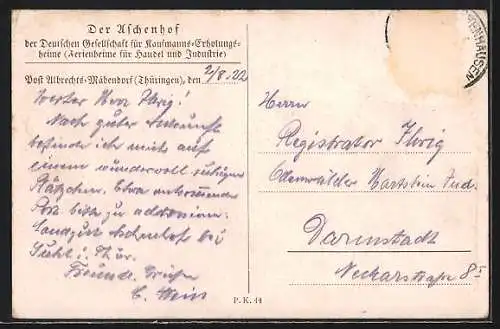 Der Aschenhof
der Deutschen Gesellschaft für Kaufmanns-Erholungs-
heime (Ferienheime für Handel und Industrie)
Post Albrechts-Mäbendorf (Thüringen), den 2/8.22
Werter Herr Ihrig!
Nach guter Ankunft
befinde ich mich auf
einem wundervoll ruhigen
Plätzchen. Etwa ankommende
Post bitte zu adressieren:
Landgut Aschenhof bei
Suhl i. Thür.
Freundl. Grüße
Herrn
Registrator Ihrig
Odenwälder Hartstein Ind.
Darmstadt
Neckarstraße 8
P. K. 44
ENHAUSEN